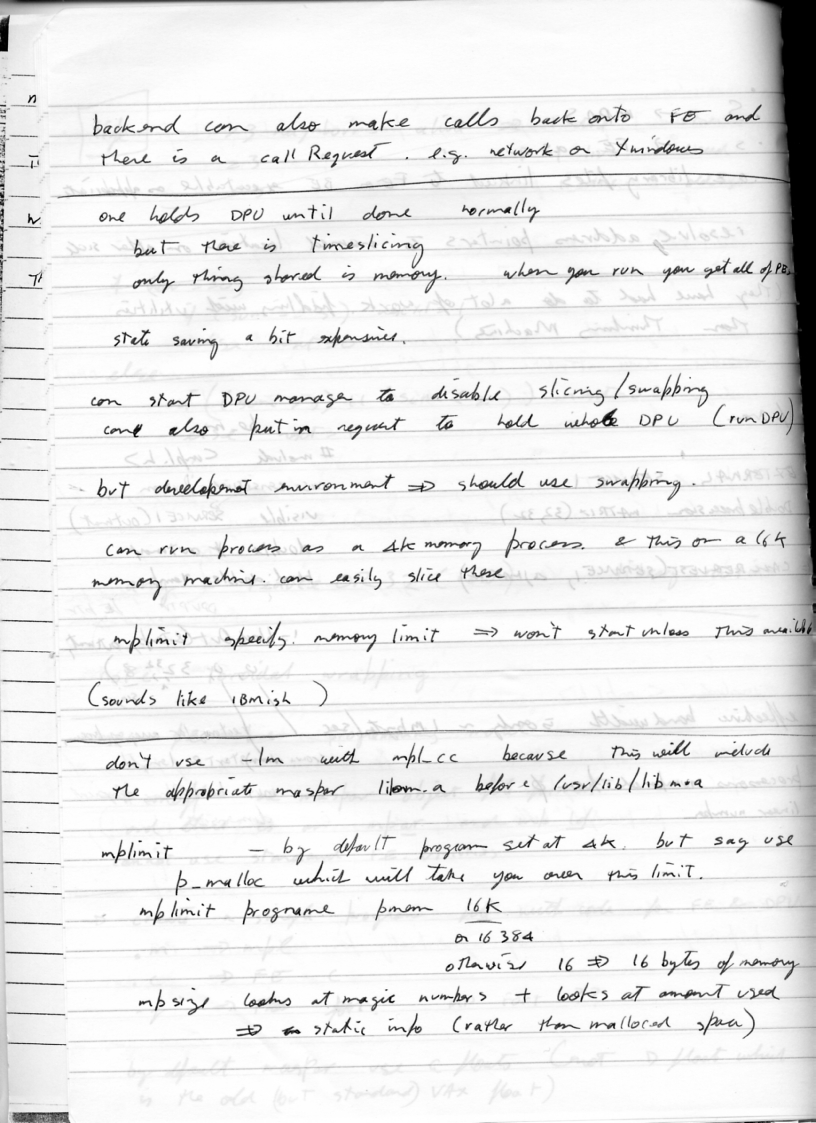 backend can also make calls back onto FE and
there is a callRequest. e.g. network or Xwindows
one holds DPU until done normally
but there is timeslicing
only thing shared is memory. when you run you get all of PEs
state saving a bit expensive.
can start DPU manager to disable slicing/swapping
can also put in request to hold whole DPU (run DPU)
but development environment ⇒ should use swapping.
can run process as a 4k memory process. & this on a 16K
memory machine. can easily slice these
mplimit specify. memory limit ⇒ won't start unless this available
(sounds like IBMish)
don't use -lm with mpl_cc because this will include
the appropriate maspar libm.a before /usr/lib/libm.a
mplimit - by default program set at 4k. but say use
p_malloc which will take you over this limit.
mplimit progname pmem 16K
or 16384
otherwise 16 ⇒ 16 bytes of memory
mpsize looks at magic numbers + looks at amount used
⇒ static info (rather than malloced space)
by default maspar use G floats (not D float which
is the old (but standard) VAX float)